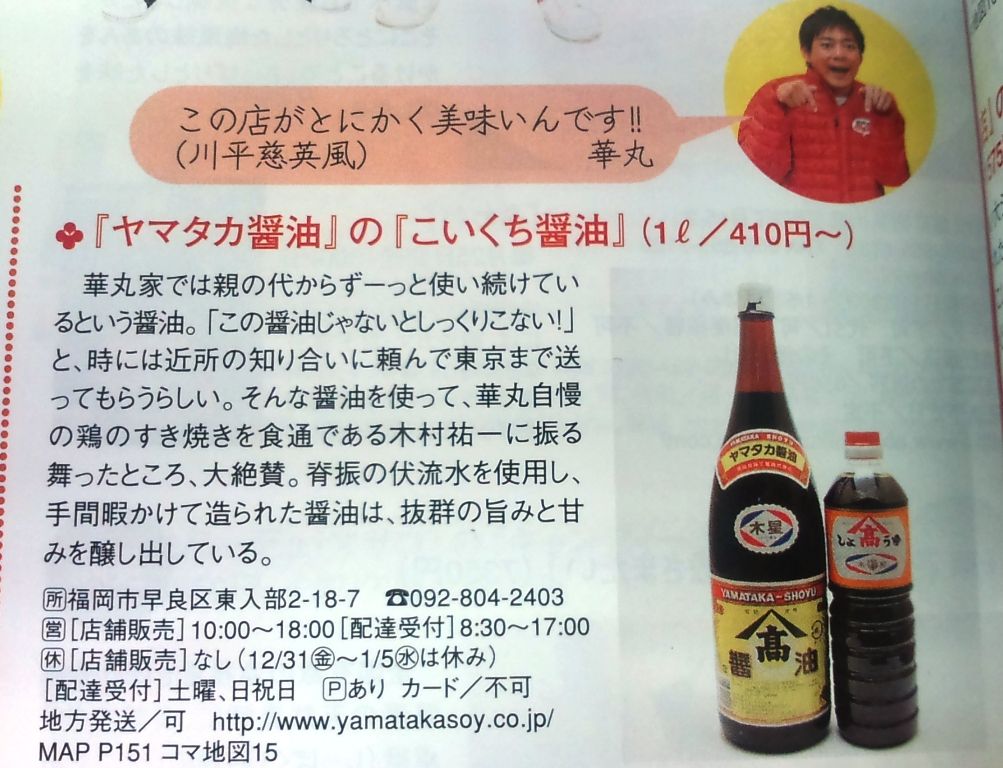 この店がとにかく美味いんです!!
(川平慈英風) 華丸
『ヤマタカ醤油』の『こいくち醤油』(1ℓ/410円〜)
華丸家では親の代からずーっと使い続けてい
るという醤油。「この醤油じゃないとしっくりこない!」
と、時には近所の知り合いに頼んで東京まで送
ってもらうらしい。そんな醤油を使って、華丸自慢
の鶏のすき焼きを食通である木村祐一に振る
舞ったところ、大絶賛。脊振の伏流水を使用し、
手間暇かけて造られた醤油は、抜群の旨みと甘
みを醸し出している。
所福岡市早良区東入部2-18-7 ☎092-804-2403
営[店舗販売]10:00〜18:00[配達受付]8:30〜17:00
休[店舗販売]なし(12/31㊎〜1/5㊌は休み)
[配達受付]土曜、日祝日 Pあり カード/不可
地方発送/可 http://www.yamatakasoy.co.jp/
MAP P151 コマ地図15
YAMATAKA SHOYU
ヤマタカ醤油
木星
YAMATAKA-SHOYU
髙
醤油
しょ髙うゆ